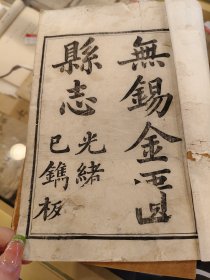 無錫金匱
縣志
光緒
巳鐫板